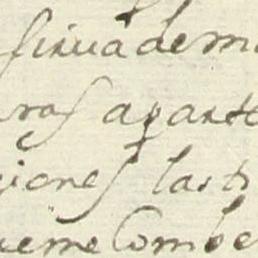 sirua dem
ras aparte
iones las ti
uieme Combe